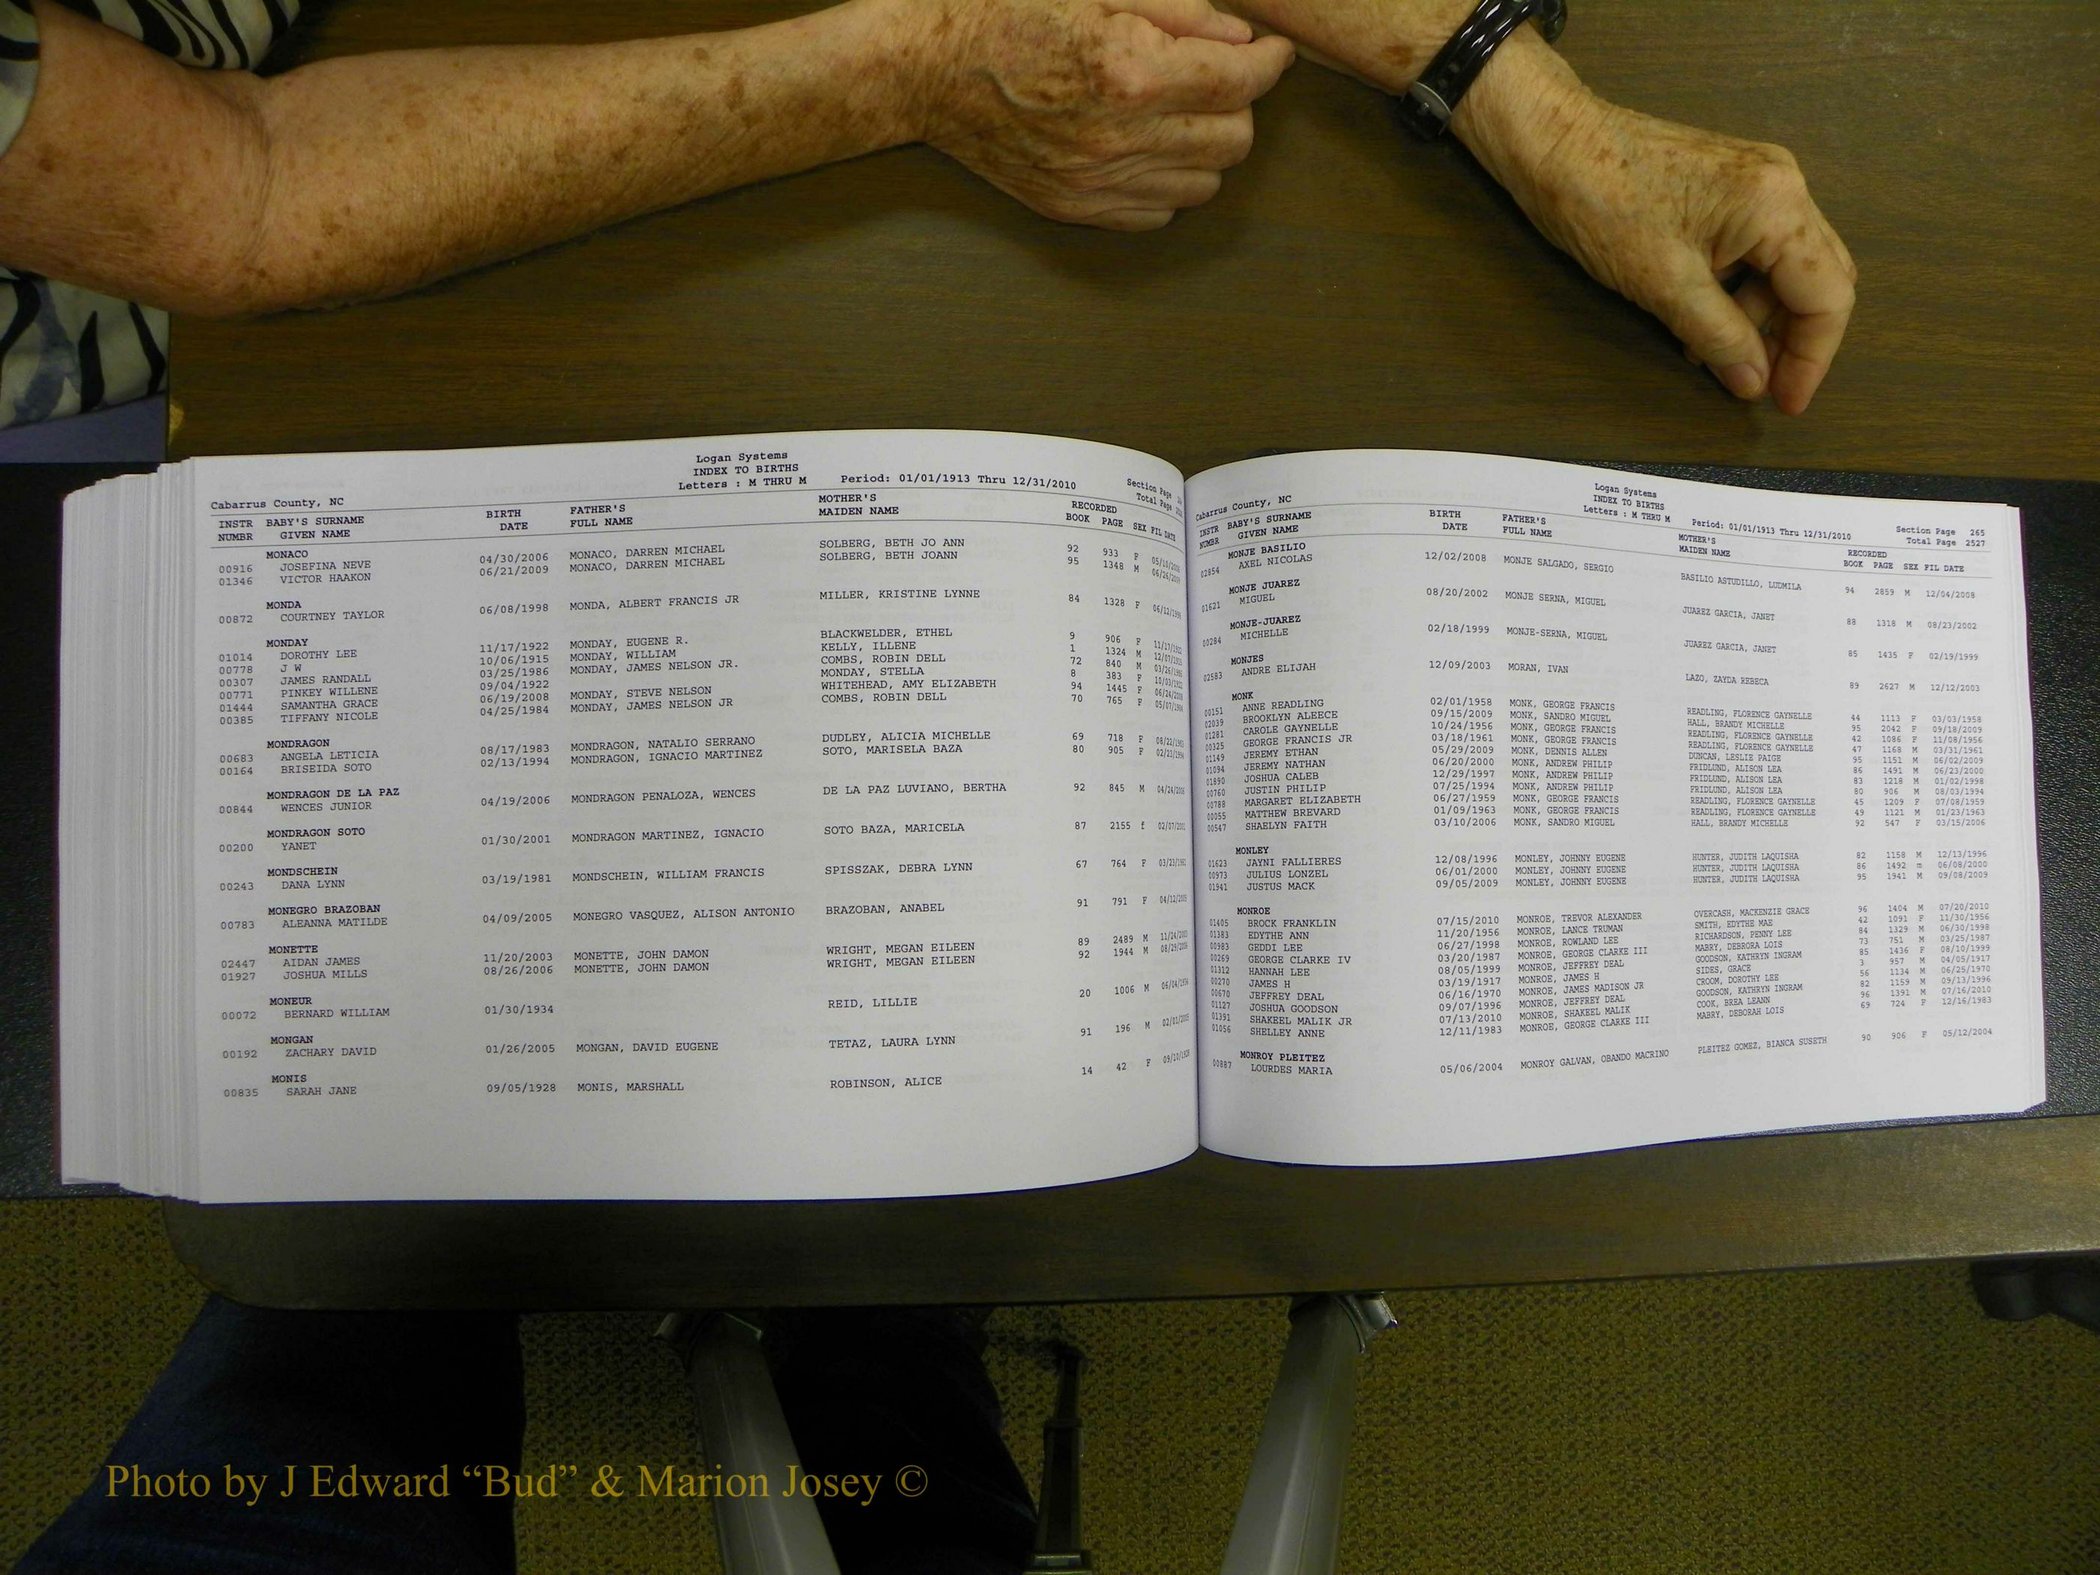 Logan Systems
INDEX TO BIRTHS
Letters : M THRU M Period: 01/01/1913 Thru 12/31/2010
Cabarrus County, NC Section Page
Total Page
INSTR BABY'S SURNAME BIRTH FATHER'S MOTHER'S RECORDED
NUMBR GIVEN NAME DATE FULL NAME MAIDEN NAME BOOK PAGE SEX FIL DATE
MONACO
00916 JOSEFINA NEVE 04/30/2006 MONACO, DARREN MICHAEL SOLBERG, BETH JO ANN 92 933 F 05/10/2006
01346 VICTOR HAAKON 06/21/2009 MONACO, DARREN MICHAEL SOLBERG, BETH JOANN 95 1348 M 06/26/2009
MONDA
00872 COURTNEY TAYLOR 06/08/1998 MONDA, ALBERT FRANCIS JR MILLER, KRISTINE LYNNE 84 1328 F 06/12/1998
MONDAY
01014 DOROTHY LEE 11/17/1922 MONDAY, EUGENE R. BLACKWELDER, ETHEL 9 906 F 11/17/1922
00778 J W 10/06/1915 MONDAY, WILLIAM KELLY, ILLENE 1 1324 M
00307 JAMES RANDALL 03/25/1986 MONDAY, JAMES NELSON JR. COMBS, ROBIN DELL 72 840 M 03/26/1986
00771 PINKEY WILLENE 09/04/1922 MONDAY, STELLA 8 383 F 10/03/1922
01444 SAMANTHA GRACE 06/19/2008 MONDAY, STEVE NELSON WHITEHEAD, AMY ELIZABETH 94 1445 F 06/24/2008
00385 TIFFANY NICOLE 04/25/1984 MONDAY, JAMES NELSON JR COMBS, ROBIN DELL 70 765 F 05/07/1984
MONDRAGON
00683 ANGELA LETICIA 08/17/1983 MONDRAGON, NATALIO SERRANO DUDLEY, ALICIA MICHELLE 69 718 F 08/22/1983
00164 BRISEIDA SOTO 02/13/1994 MONDRAGON, IGNACIO MARTINEZ SOTO, MARISELA BAZA 80 905 F 02/21/1994
MONDRAGON DE LA PAZ
00844 WENCES JUNIOR 04/19/2006 MONDRAGON PENALOZA, WENCES DE LA PAZ LUVIANO, BERTHA 92 845 M 04/24/2006
MONDRAGON SOTO
00200 YANET 01/30/2001 MONDRAGON MARTINEZ, IGNACIO SOTO BAZA, MARICELA 87 2155 f 02/07/2001
MONDSCHEIN
00243 DANA LYNN 03/19/1981 MONDSCHEIN, WILLIAM FRANCIS SPISSZAK, DEBRA LYNN 67 764 F 03/23/1981
MONEGRO BRAZOBAN
00783 ALEANNA MATILDE 04/09/2005 MONEGRO VASQUEZ, ALISON ANTONIO BRAZOBAN, ANABEL 91 791 F 04/12/2005
MONETTE
02447 AIDAN JAMES 11/20/2003 MONETTE, JOHN DAMON WRIGHT, MEGAN EILEEN 89 2489 M 11/24/2003
01927 JOSHUA MILLS 08/26/2006 MONETTE, JOHN DAMON WRIGHT, MEGAN EILEEN 92 1944 M 08/29/2006
MONEUR
00072 BERNARD WILLIAM 01/30/1934 REID, LILLIE 20 1006 M 06/04/1934
MONGAN
00192 ZACHARY DAVID 01/26/2005 MONGAN, DAVID EUGENE TETAZ, LAURA LYNN 91 196 M 02/01/2005
MONIS
00835 SARAH JANE 09/05/1928 MONIS, MARSHALL ROBINSON, ALICE 14 42 F 09/10/1928
Logan Systems
INDEX TO BIRTHS
Letters : M THRU M Period: 01/01/1913 Thru 12/31/2010
Cabarrus County, NC Section Page 265
Total Page 2527
INSTR BABY'S SURNAME BIRTH FATHER'S MOTHER'S RECORDED
NUMBR GIVEN NAME DATE FULL NAME MAIDEN NAME BOOK PAGE SEX FIL DATE
MONJE BASILIO
02854 AXEL NICOLAS 12/02/2008 MONJE SALGADO, SERGIO BASILIO ASTUDILLO, LUDMILA 94 2859 M 12/04/2008
MONJE JUAREZ
01621 MIGUEL 08/20/2002 MONJE SERNA, MIGUEL JUAREZ GARCIA, JANET 88 1318 M 08/23/2002
MONJE-JUAREZ
00284 MICHELLE 02/18/1999 MONJE-SERNA, MIGUEL JUAREZ GARCIA, JANET 85 1435 F 02/19/1999
MONJES
02583 ANDRE ELIJAH 12/09/2003 MORAN, IVAN LAZO, ZAYDA REBECA 89 2627 M 12/12/2003
MONK
00151 ANNE READLING 02/01/1958 MONK, GEORGE FRANCIS READLING, FLORENCE GAYNELLE 44 1113 F 03/03/1958
02039 BROOKLYN ALEECE 09/15/2009 MONK, SANDRO MIGUEL HALL, BRANDY MICHELLE 95 2042 F 09/18/2009
01281 CAROLE GAYNELLE 10/24/1956 MONK, GEORGE FRANCIS READLING, FLORENCE GAYNELLE 42 1086 F 11/08/1956
00325 GEORGE FRANCIS JR 03/18/1961 MONK, GEORGE FRANCIS READLING, FLORENCE GAYNELLE 47 1168 M 03/31/1961
01149 JEREMY ETHAN 05/29/2009 MONK, DENNIS ALLEN DUNCAN, LESLIE PAIGE 95 1151 M 06/02/2009
01094 JEREMY NATHAN 06/20/2000 MONK, ANDREW PHILIP FRIDLUND, ALISON LEA 86 1491 M 06/23/2000
01890 JOSHUA CALEB 12/29/1997 MONK, ANDREW PHILIP FRIDLUND, ALISON LEA 83 1218 M 01/02/1998
00760 JUSTIN PHILIP 07/25/1994 MONK, ANDREW PHILIP FRIDLUND, ALISON LEA 80 906 M 08/03/1994
00788 MARGARET ELIZABETH 06/27/1959 MONK, GEORGE FRANCIS READLING, FLORENCE GAYNELLE 45 1209 F 07/08/1959
00055 MATTHEW BREVARD 01/09/1963 MONK, GEORGE FRANCIS READLING, FLORENCE GAYNELLE 49 1121 M 01/23/1963
00547 SHAELYN FAITH 03/10/2006 MONK, SANDRO MIGUEL HALL, BRANDY MICHELLE 92 547 F 03/15/2006
MONLEY
01623 JAYNI FALLIERES 12/08/1996 MONLEY, JOHNNY EUGENE HUNTER, JUDITH LAQUISHA 82 1158 M 12/13/1996
00973 JULIUS LONZEL 06/01/2000 MONLEY, JOHNNY EUGENE HUNTER, JUDITH LAQUISHA 86 1492 m 06/08/2000
01941 JUSTUS MACK 09/05/2009 MONLEY, JOHNNY EUGENE HUNTER, JUDITH LAQUISHA 95 1941 M 09/08/2009
MONROE
01405 BROCK FRANKLIN 07/15/2010 MONROE, TREVOR ALEXANDER OVERCASH, MACKENZIE GRACE 96 1404 M 07/20/2010
01383 EDYTHE ANN 11/20/1956 MONROE, LANCE TRUMAN SMITH, EDYTHE MAE 42 1091 F 11/30/1956
00983 GEDDI LEE 06/27/1998 MONROE, ROWLAND LEE RICHARDSON, PENNY LEE 84 1329 M 06/30/1998
00269 GEORGE CLARKE IV 03/20/1987 MONROE, GEORGE CLARKE III MABRY, DEBRORA LOIS 73 751 M 03/25/1987
01312 HANNAH LEE 08/05/1999 MONROE, JEFFREY DEAL GOODSON, KATHRYN INGRAM 85 1436 F 08/10/1999
00270 JAMES H 03/19/1917 MONROE, JAMES H SIDES, GRACE 3 957 M 04/05/1917
00670 JEFFREY DEAL 06/16/1970 MONROE, JAMES MADISON JR CROOM, DOROTHY LEE 56 1134 M 06/25/1970
01127 JOSHUA GOODSON 09/07/1996 MONROE, JEFFREY DEAL GOODSON, KATHRYN INGRAM 82 1159 M 09/13/1996
01391 SHAKEEL MALIK JR 07/13/2010 MONROE, SHAKEEL MALIK COOK, BREA LEANN 96 1391 M 07/16/2010
01056 SHELLEY ANNE 12/11/1983 MONROE, GEORGE CLARKE III MABRY, DEBORAH LOIS 69 724 F 12/16/1983
MONROY PLEITEZ
00887 LOURDES MARIA 05/06/2004 MONROY GALVAN, OBANDO MACRINO PLEITEZ GOMEZ, BIANCA SUSETH 90 906 F 05/12/2004
Photo by J Edward “Bud” & Marion Josey ©